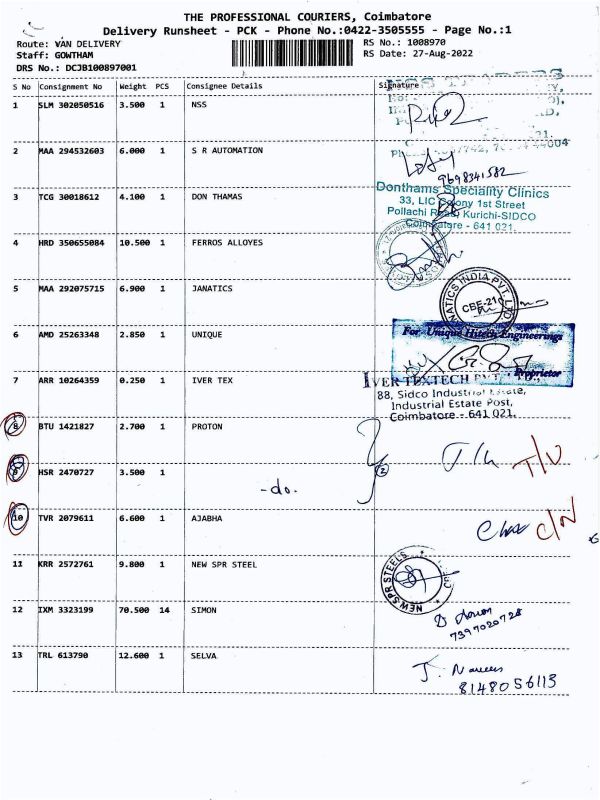 THE PROFESSIONAL COURIERS, Coimbatore
Delivery Runsheet - PCK - Phone No.:0422-3505555 - Page No.:1
Route: VAN DELIVERY RS No.: 1008970
Staff: GOWTHAM RS Date: 27-Aug-2022
DRS No.: DCJB100897001
S No Consignment No Weight PCS Consignee Details Signature
1 SLM 302050516 3.500 1 NSS
2 MAA 294532603 6.000 1 S R AUTOMATION
9698341582
3 TCG 30018612 4.100 1 DON THAMAS
Donthams Speciality Clinics
33, LIC Colony 1st Street
Pollachi Road, Kurichi-SIDCO
Coimbatore - 641 021.
4 HRD 350655084 10.500 1 FERROS ALLOYES
5 MAA 292075715 6.900 1 JANATICS
JANATICS INDIA PVT. LTD.
CBE-21
6 AMD 25263348 2.850 1 UNIQUE
For Unique Hitech Engineerings
Proprietor
7 ARR 10264359 0.250 1 IVER TEX
IVER TEXTECH PVT.
88, Sidco Industrial Estate,
Industrial Estate Post,
Coimbatore - 641 021.
8 BTU 1421827 2.700 1 PROTON
9 HSR 2470727 3.500 1 -do.
2
T/V
10 TVR 2079611 6.600 1 AJABHA
C/N
11 KRR 2572761 9.800 1 NEW SPR STEEL
NEW SPR STEELS
CBE
12 IXM 3323199 70.500 14 SIMON
7397020728
13 TRL 613790 12.600 1 SELVA
8148056113